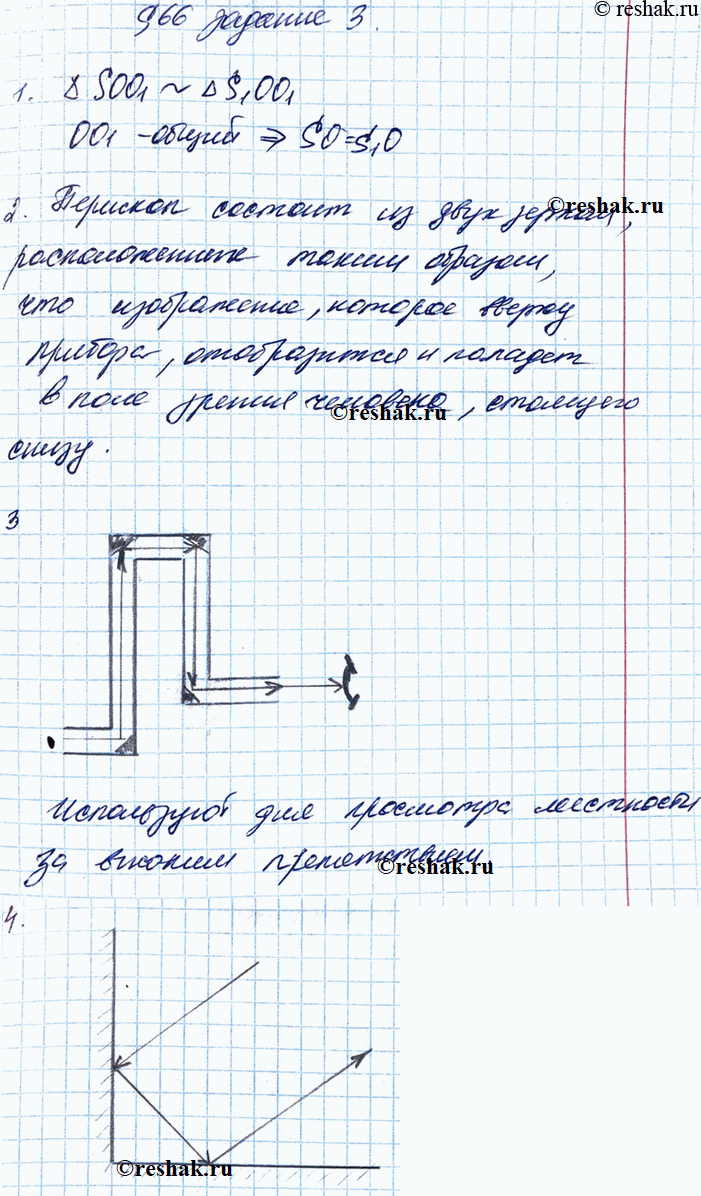 © reshak.ru
§66 задание 3.
1. Δ SOO₁ ~ Δ S₁OO₁
OO₁ -общий ⇒ SO=S₁O
©reshak.ru
2. Перископ состоит из двух зеркал,
расположенных таким образом,
что изображение, которое вверху
прибора, отобразится и попадет
в поле зрения человека, стоящего
©reshak.ru
снизу.
3
Используют для просмотра местности
за высоким препятствием.
©reshak.ru
4.
©reshak.ru